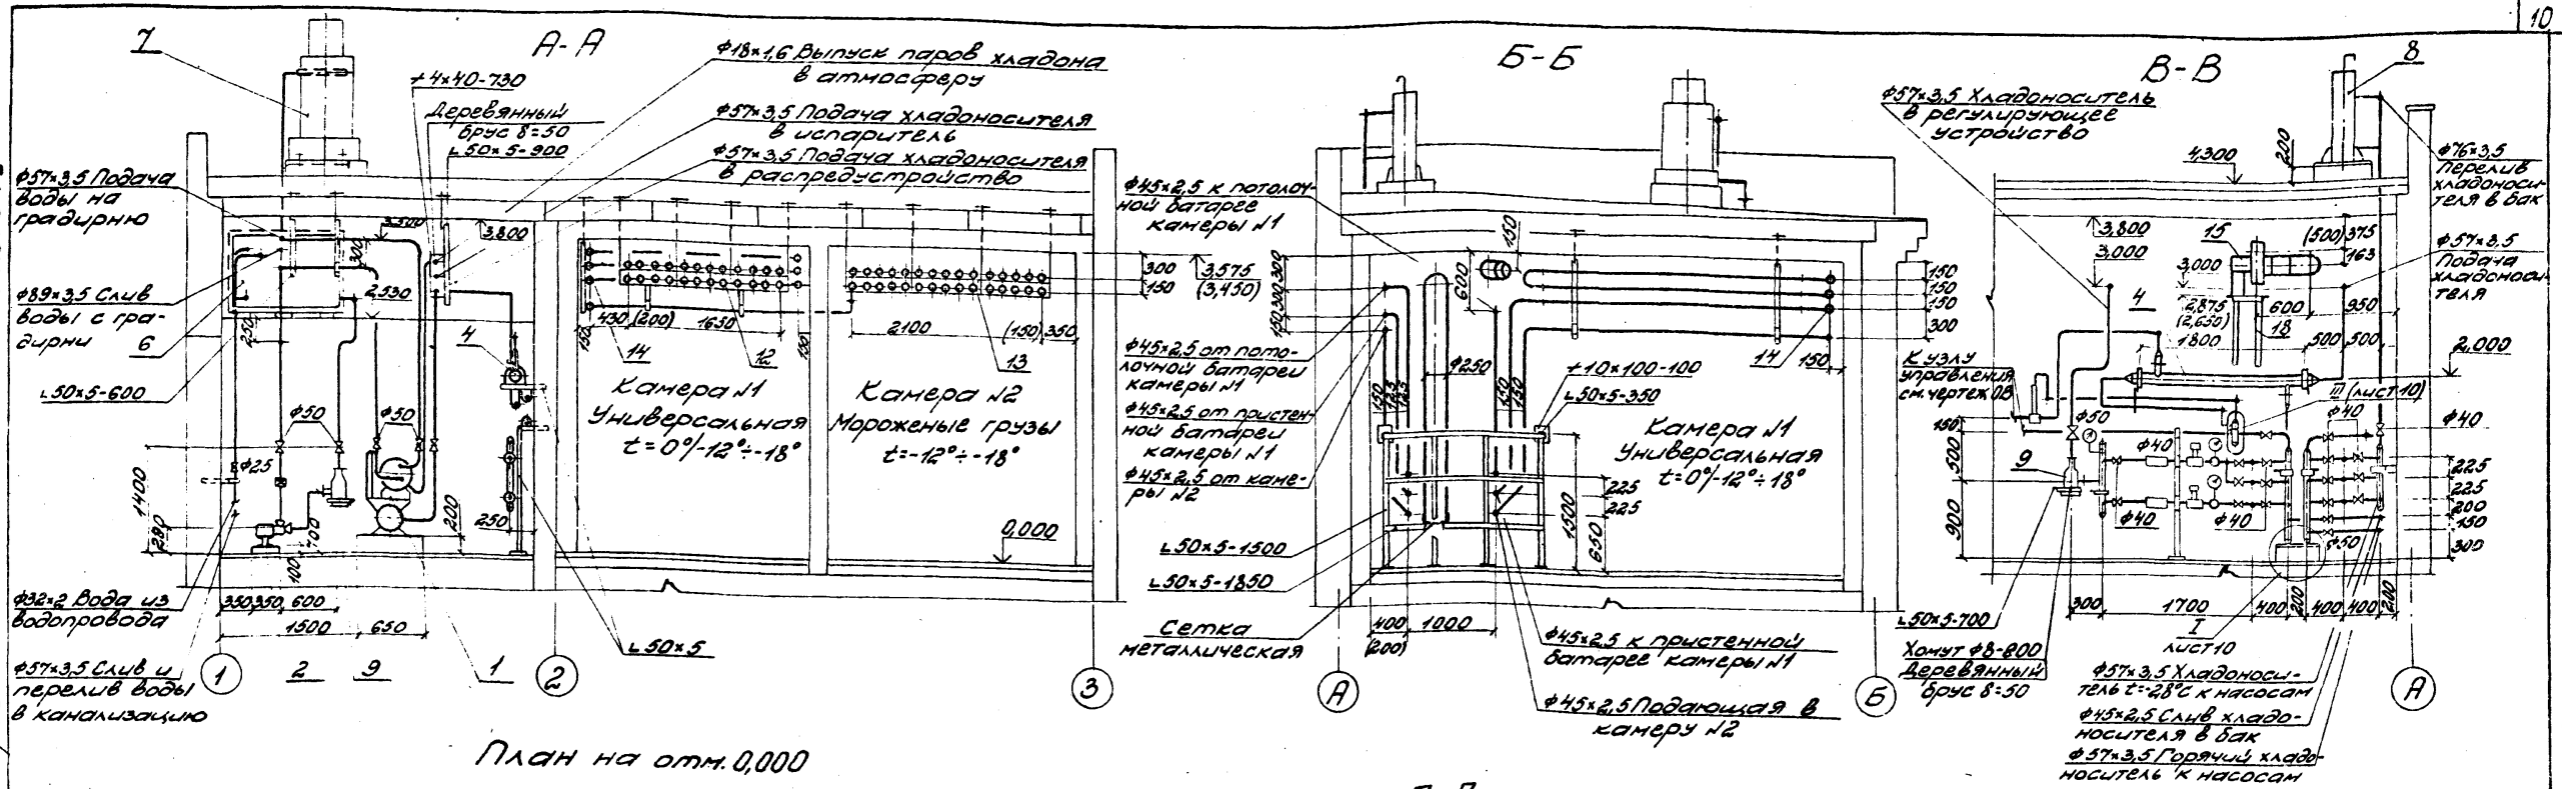 10
А-А
7
-4×40-730
Деревянный
брус δ=50
∟50×5-900
φ18×1,6 Выпуск паров хладона
в атмосферу
φ57×3,5 Подача хладоносителя
в испаритель
φ57×3,5 Подача хладоносителя
в распредустройство
φ57×3,5 Подача
воды на
градирню
φ89×3,5 Слив
воды с гра-
дирни
6
∟50×5-600
3,500
3,800
300
2,530
250
4
φ50
φ50
φ25
1400
280
100
70
200
250
φ32×2 Вода из
водопровода
φ57×3,5 Слив и
перелив воды
в канализацию
350
350
600
1500
650
1
2
9
1
2
3
∟50×5
150
430
(200)
1650
150
2100
(150)
350
14
12
13
300
150
3,575
(3,450)
Камера №1
Универсальная
t=0°/-12°÷-18°
Камера №2
Мороженые грузы
t=-12°÷-18°
0,000
План на отм. 0,000
Б-Б
φ45×2,5 к потолоч-
ной батарее
камеры №1
φ45×2,5 от пото-
лочной батареи
камеры №1
φ45×2,5 от пристен-
ной батареи
камеры №1
φ45×2,5 от каме-
ры №2
∟50×5-1500
∟50×5-1850
Сетка
металлическая
150
300
300
150
600
150
φ250
150
125
125
150
150
-10×100-100
∟50×5-350
225
225
1500
650
400
(200)
1000
14
150
150
150
150
300
Камера №1
Универсальная
t=0°/-12°÷18°
φ45×2,5 к пристенной
батарее камеры №1
φ45×2,5 Подающая в
камеру №2
А
Б
В-В
8
φ57×3,5 Хладоноситель
в регулирующее
устройство
4,300
200
φ76×3,5
Перелив
хладоноси-
теля в бак
φ57×3,5
Подача
хладоноси-
теля
3,800
3,000
15
(500)
375
163
3,000
4
2,875
(2,650)
1800
600
950
18
500
500
2,000
К узлу
управления
см.чертеж ОВ
III (лист 10)
φ50
φ40
φ40
φ40
φ40
φ40
φ50
150
500
900
9
225
225
200
150
300
300
1700
400
200
400
400
200
∟50×5-700
Хомут φ8-800
Деревянный
брус δ=50
I
лист 10
φ57×3,5 Хладоноси-
тель t=-28°С к насосам
φ45×2,5 Слив хладо-
носителя в бак
φ57×3,5 Горячий хладо-
носитель к насосам
А